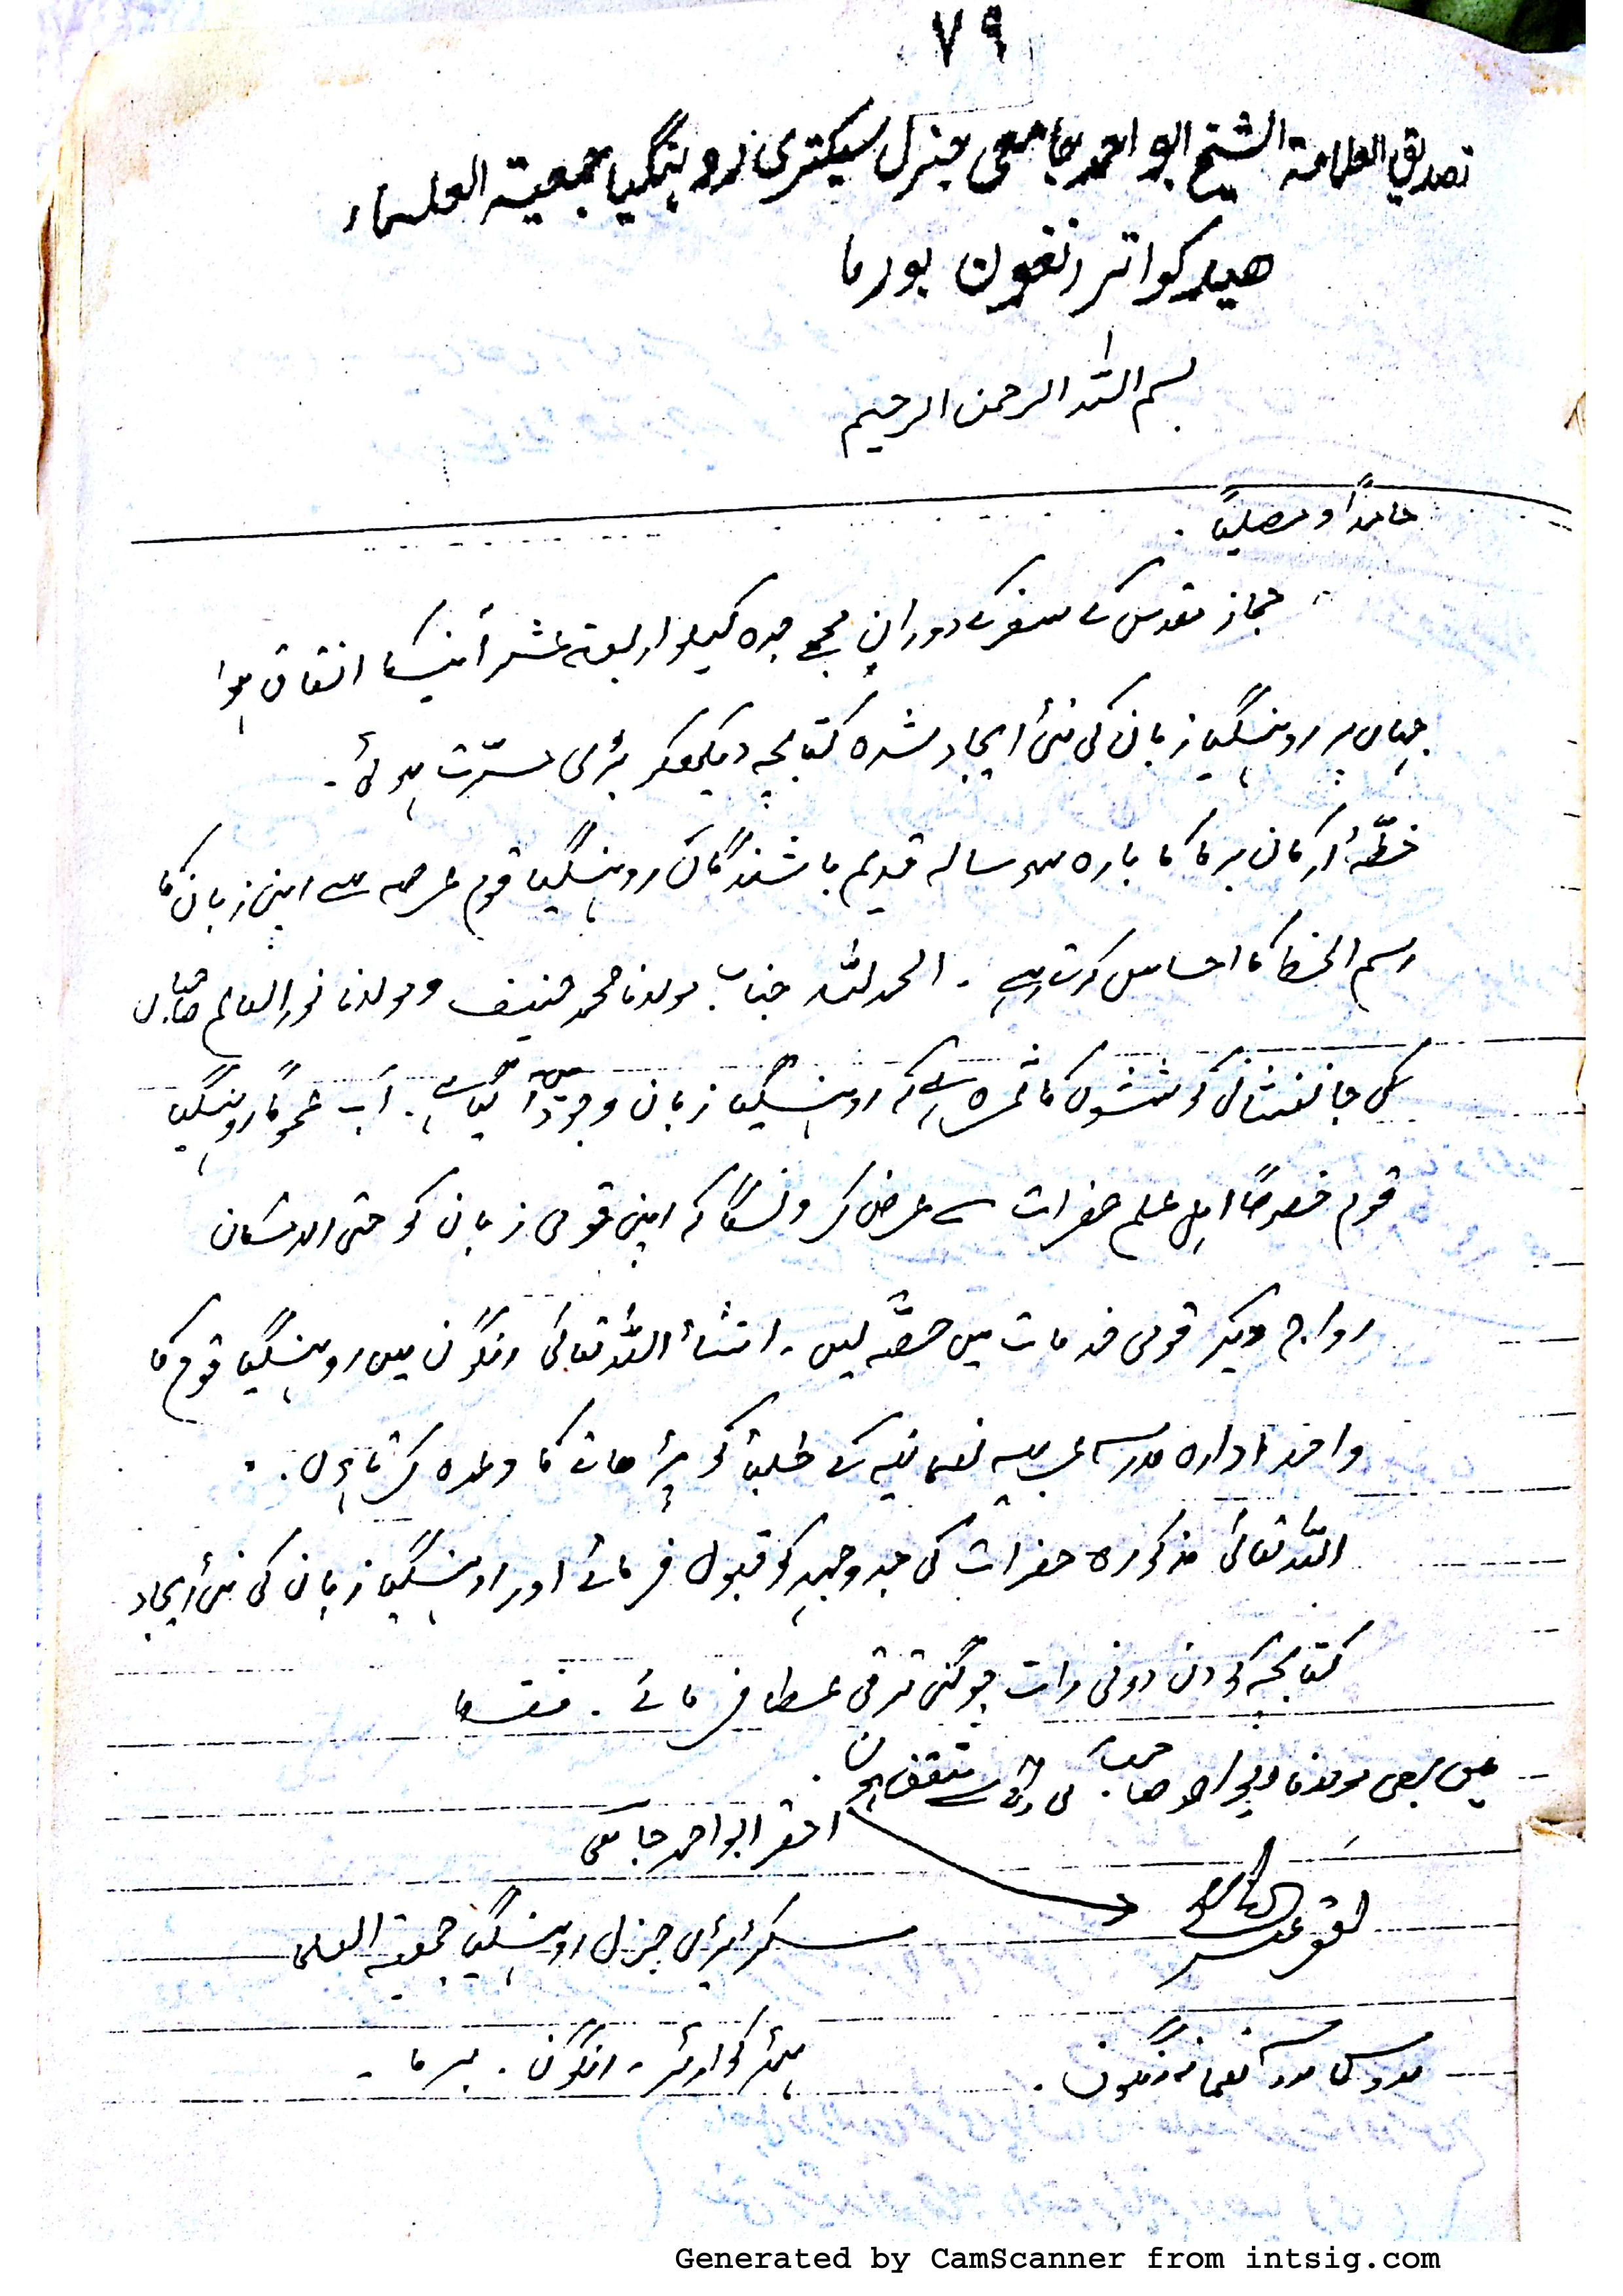 ٧٩
تصديق العلامة الشيخ ابو احمد جامعی جنرل سیکتری روہنگیا جمعية العلماء
هيدكواتر رنغون بورما
بسم اللہ الرحمن الرحیم
حامدًا و مصلیًا .
حجاز مقدس کے سفر کے دوران مجھے جدہ کیلو اربعۃ عشر آنیکا اتفاق ہوا
جہاں پر روہنگیا زبان کی نئی ایجاد شدہ کتابچہ دیکھکر بڑی مسرّت ہوئی ۔
خطّہٴ ارکان برما کا بارہ سو سالہ قدیم باشندگان روہنگیا قوم عرصہ سے اپنی زبان کا
رسم الخط کا احساس کرت ہے ۔ الحمد للہ جناب مولانا محمد حنیف و مولانا نور العالم صاحبان
کی جانفشانی کوششوں کا ثمرہ ہے کہ روہنگیا زبان وجود میں آ گیا ہے ۔ اب عموماً روہنگیا
قوم خصوصًا اہل علم حضرات سے عرض کرونگا کہ اپنی قومی زبان کو حتی الامکان
رواج دیکر قومی خدمات میں حصّہ لیں ۔ انشأ اللہ تعالیٰ رنگون میں روہنگیا قوم کا
واحد ادارہ مدرسہ عربیہ نعمانیہ کے طلبۃ کو پڑھانے کا وعدہ کرتا ہوں .
اللہ تعالیٰ مذکورہ حضرات کی جدوجہد کو قبول فرمائے اور روہنگیا زبان کی نئی ایجاد
کتابچہ کو دن دونی رات چوگنی ترقی عطا فرمائے . فقط
میں بھی مولانا ابو احمد صاحب کی رائے سے متفق ہوں .
احقر ابو احمد جامعی
سکرٹیری جنرل روہنگیا جمعیۃ العلما
ہیڈ کوارٹر ۔ رنگون . برما ۔
مدرس مدرسہ نعمانیہ رنگون .
Generated by CamScanner from intsig.com